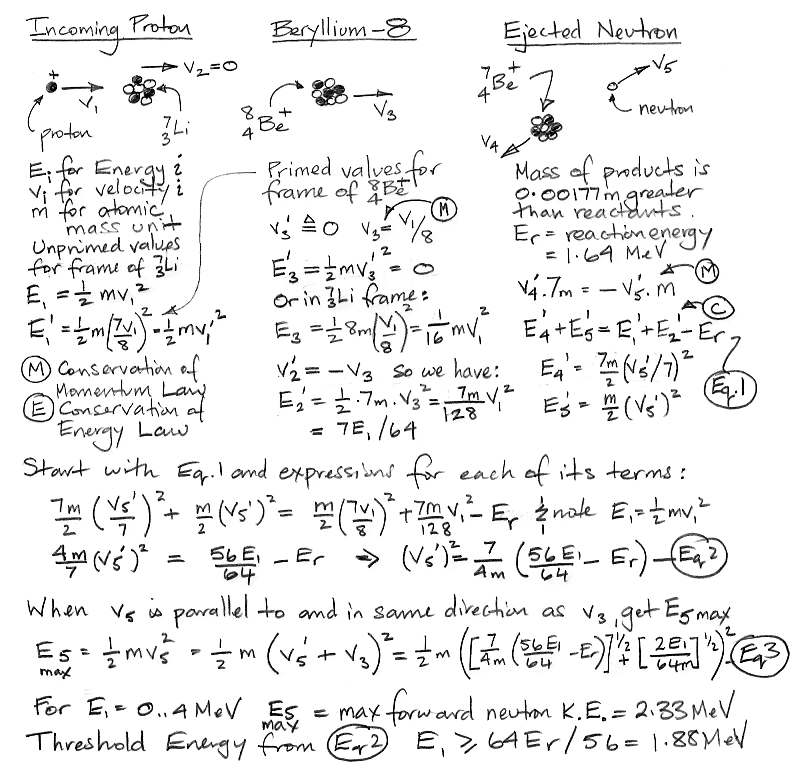 Incoming Proton
+
V₁
V₂=0
proton
⁷₃Li
Eᵢ for Energy i
vᵢ for velocity i
m for atomic
mass unit
Unprimed values
for frame of ⁷₃Li
E₁ = ½mv₁²
E₁' = ½m(7v₁/8)² = ½mv₁'²
(M) Conservation of
Momentum Law
(E) Conservation of
Energy Law
Beryllium-8
⁸₄Be⁺
V₃
Primed values for
frame of ⁸₄Be⁺
V₃' ≜ 0 V₃ = V₁/8 (M)
E₃' = ½mv₃'² = 0
Or in ⁷₃Li frame:
E₃ = ½8m(V₁/8)² = 1/16 mv₁²
V₂' = -V₃ so we have:
E₂' = ½·7m·V₃² = 7m/128 V₁²
= 7E₁/64
Ejected Neutron
⁷₄Be⁺
V₄
V₅
neutron
Mass of products is
0.00177m greater
than reactants.
Er = reaction energy
= 1.64 MeV
(M)
V₄'.7m = -V₅'.m
(C)
E₄'+E₅' = E₁'+E₂'-Er
E₄' = 7m/2 (V₅'/7)²
E₅' = m/2 (V₅')²
Eq.1
Start with Eq.1 and expressions for each of its terms:
7m/2 (V₅'/7)² + m/2 (V₅')² = m/2 (7V₁/8)² + 7m/128 V₁² - Er & note E₁=½mv₁²
4m/7 (V₅')² = 56E₁/64 - Er ⇒ (V₅')² = 7/4m (56E₁/64 - Er) — Eq2
When V₅ is parallel to and in same direction as V₃, get E₅max
E₅max = ½mv₅² = ½m (V₅' + V₃)² = ½m ([7/4m (56E₁/64 - Er)]^½ + [2E₁/64m]^½)² - Eq3
For E₁ = 0..4MeV E₅max = max forward neutron K.E. = 2.33MeV
Threshold Energy from Eq2 E₁ ⩾ 64Er/56 = 1.88MeV